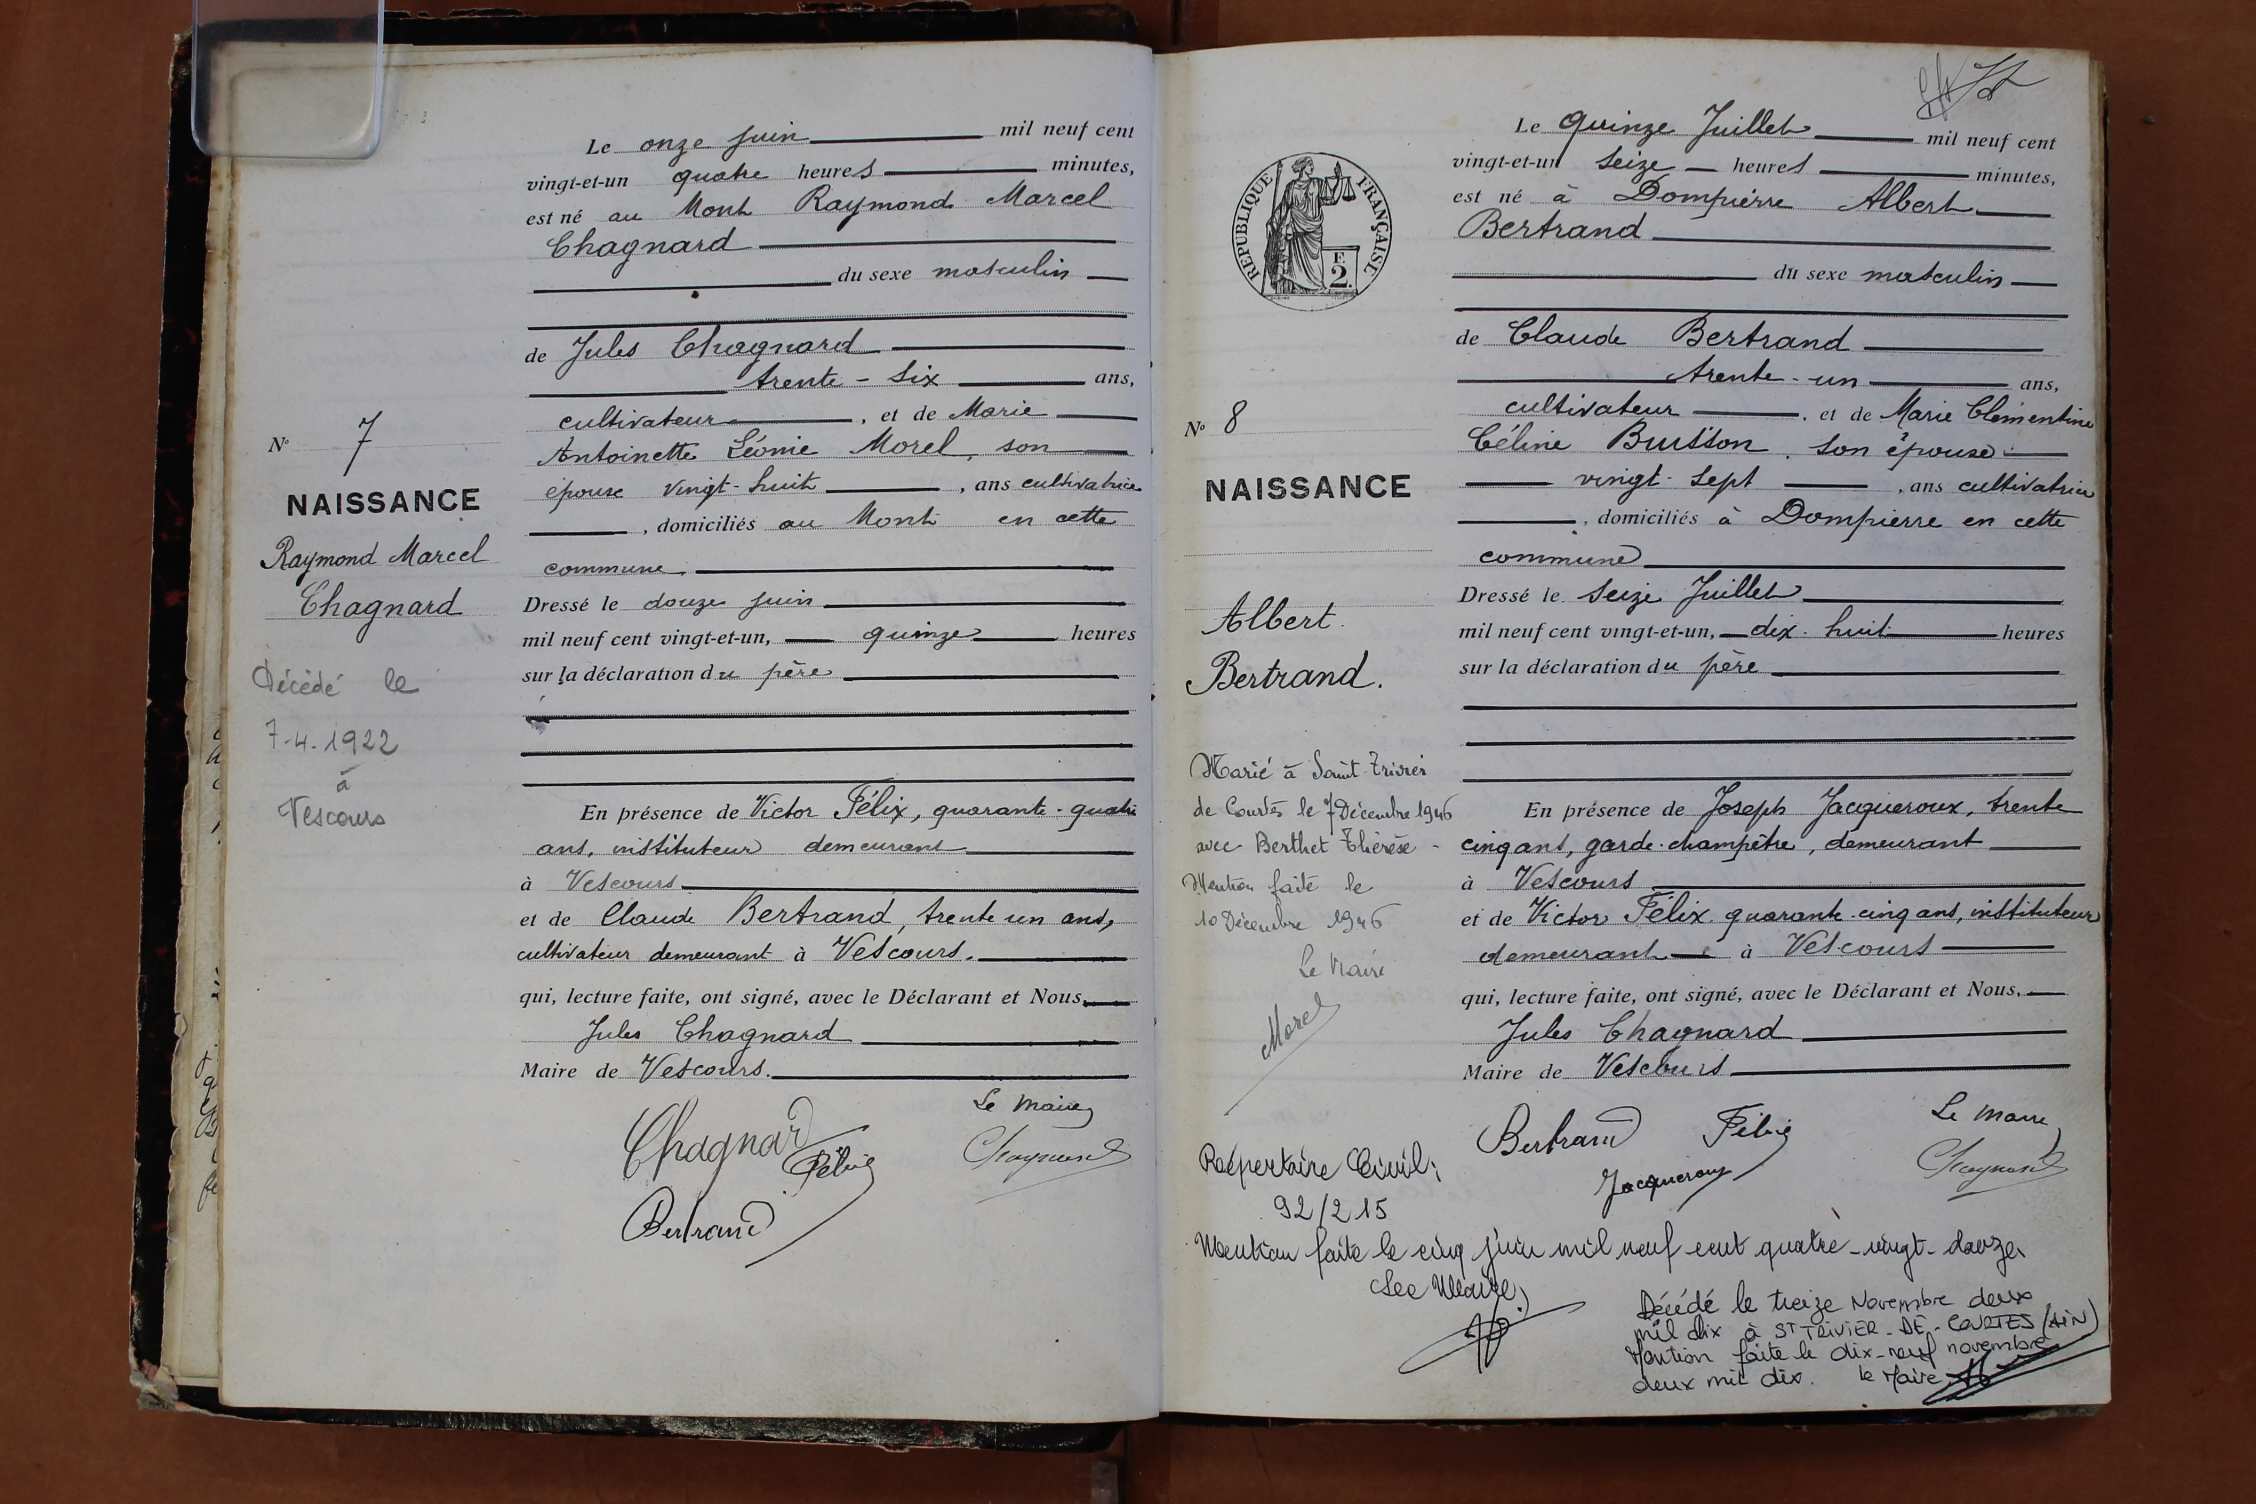 Le onze juin mil neuf cent
vingt-et-un quatre heures minutes,
est né au Mont Raymond Marcel
Chagnard
du sexe masculin
de Jules Chagnard
trente-six ans,
cultivateur, et de Marie
Antoinette Léonie Morel, son
épouse vingt-huit, ans cultivatrice
, domiciliés au Mont en cette
commune.
Dressé le douze juin
mil neuf cent vingt-et-un, quinze heures
sur la déclaration du père
En présence de Victor Félix, quarante-quatre
ans, instituteur demeurant
à Vescours
et de Claude Bertrand, trente un ans,
cultivateur demeurant à Vescours.
qui, lecture faite, ont signé, avec le Déclarant et Nous,
Jules Chagnard
Maire de Vescours.
Le Maire
Chagnard
Félix
Chagnard
Bertrand
N° 7
NAISSANCE
Raymond Marcel
Chagnard
Décédé le
7-4-1922
à
Vescours
Le quinze Juillet mil neuf cent
vingt-et-un seize heures minutes,
est né à Dompierre Albert
Bertrand
du sexe masculin
de Claude Bertrand
trente-un ans,
cultivateur, et de Marie Clémentine
Céline Buisson, son épouse
vingt-sept, ans cultivatrice
, domiciliés à Dompierre en cette
commune
Dressé le seize Juillet
mil neuf cent vingt-et-un, dix-huit heures
sur la déclaration du père
En présence de Joseph Jacqueroux, trente
cinq ans, garde-champêtre, demeurant
à Vescours
et de Victor Félix quarante-cinq ans, instituteur
demeurant à Vescours
qui, lecture faite, ont signé, avec le Déclarant et Nous,
Jules Chagnard
Maire de Vescours
Le Maire
Bertrand
Félix
Jacqueroux
Chagnard
REPUBLIQUE FRANÇAISE
F.
2.
N° 8
NAISSANCE
Albert
Bertrand.
Marié à Saint-Trivier
de Courtes le 7 Décembre 1946
avec Berthet Thérèse -
Mention faite le
10 Décembre 1946
Le Maire
Morel
Répertoire Civil:
92/215
Mention faite le cinq juin mil neuf cent quatre-vingt-douze
Le Maire,
Décédé le treize Novembre deux
mil dix à ST TRIVIER-DE-COURTES (AIN)
Mention faite le dix-neuf novembre
deux mil dix. le Maire